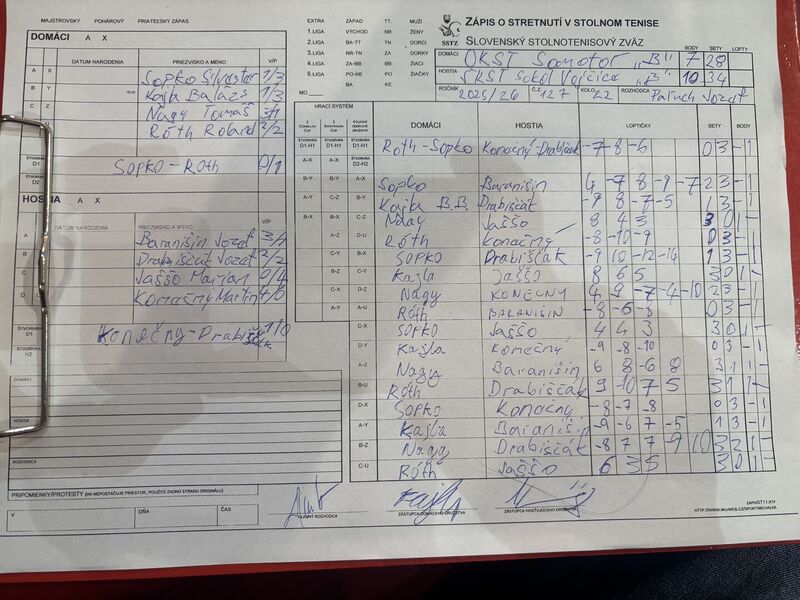 MAJSTROVSKÝ POHÁROVÝ PRIATEĽSKÝ ZÁPAS
DOMÁCI A X
DÁTUM NARODENIA PRIEZVISKO A MENO V/P
A X Sopko Silvester 1/3
B Y Kajla Balázs 1/3
C Z Nagy Tomáš 3/1
Róth Roland 2/2
ŠTVORHRA D1 SOPKO - RÓTH 0/1
ŠTVORHRA D2
HOSTIA A X
DÁTUM NARODENIA PRIEZVISKO A MENO V/P
A Baranišin Jozef 3/1
B Drabiščák Jozef 2/2
C Jaššo Marian 0/4
D Konečný Martin 4/0
ŠTVORHRA D1 KONEČNY - Drabiščák 1/0
ŠTVORHRA H2
DOMÁCI
HOSTIA
ROZHODCA
PRIPOMIENKY/PROTESTY (AK NEPOSTAČUJE PRIESTOR, POUŽITE ZADNÚ STRANU ORIGINÁLU)
V DŇA ČAS
EXTRA ZÁPAD TT MUŽI
1.LIGA VÝCHOD NR ŽENY
2.LIGA BA-TT TN DORCI
3.LIGA NR-TN ZA DORKY
4.LIGA ZA-BB BB ŽIACI
5.LIGA PO-KE PO ŽIAČKY
BA KE
MO
SSTZ
ZÁPIS O STRETNUTÍ V STOLNOM TENISE
SLOVENSKÝ STOLNOTENISOVÝ ZVÄZ
BODY SETY LOPTY
DOMÁCI OKST Somotor "B" 7 28
HOSTIA ŠKST Sokol Vojčice "B" 10 34
ROČNÍK 2025/26 Č.Z. 127 KOLO 22 ROZHODCA Paľuch Jozef
HRACÍ SYSTÉM
DOMÁCI HOSTIA LOPTIČKY SETY BODY
D1-H1 Róth-Sopko Konečný-Drabiščák -7 -8 -6 0 3 -1
A-X D2-H2
B-Y Sopko Baranišin 4 -7 8 -9 -7 2 3 -1
Kajla B.B. Drabiščák -9 8 -7 -5 1 3 -1
Nagy Jaššo 8 4 3 3 0 1-
Róth Konečný -8 -10 -9 0 3 -1
SOPKO Drabiščák -9 10 -12 -14 1 3 -1
Kajla Jaššo 8 6 5 3 0 1-
Nagy KONEČNY 4 9 -7 -4 -10 2 3 -1
Róth BARANIŠIN -8 -6 -8 0 3 -1
C-X SOPKO Jaššo 4 4 3 3 0 1-
D-Y Kajla Konečný -9 -8 -10 0 3 -1
A-Z Nagy Baranišin 6 8 -6 8 3 1 1-
B-U Róth Drabiščák 9 -10 7 5 3 1 1-
D-X Sopko Konečný -8 -7 -8 0 3 -1
A-Y Kajla Baranišin -9 -6 7 -5 1 3 -1
B-Z Nagy Drabiščák -8 7 7 -9 10 3 2 1-
C-U Róth Jaššo 6 3 5 3 0 1-
HLAVNÝ ROZHODCA ZÁSTUPCA DOMÁCEHO DRUŽSTVA ZÁSTUPCA HOSŤUJÚCEHO DRUŽSTVA